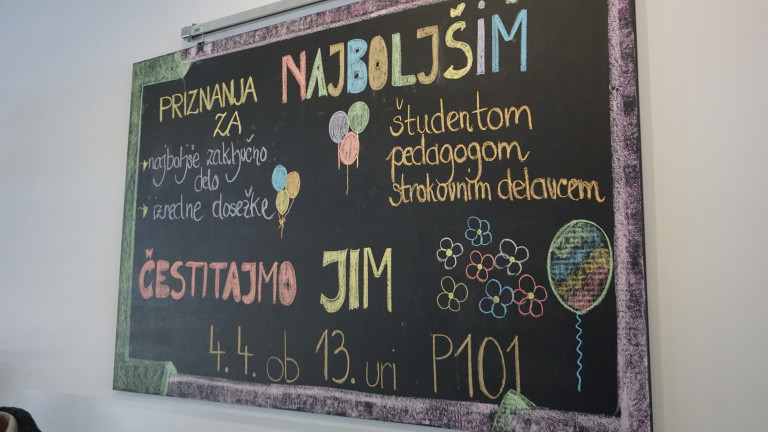 NAJBOLJŠIM
PRIZNANJA
ZA
najboljše zaključno
delo
izredne dosežke
študentom
pedagogom
strokovnim delavcem
ČESTITAJMO JIM
4. 4. ob 13. uri P101